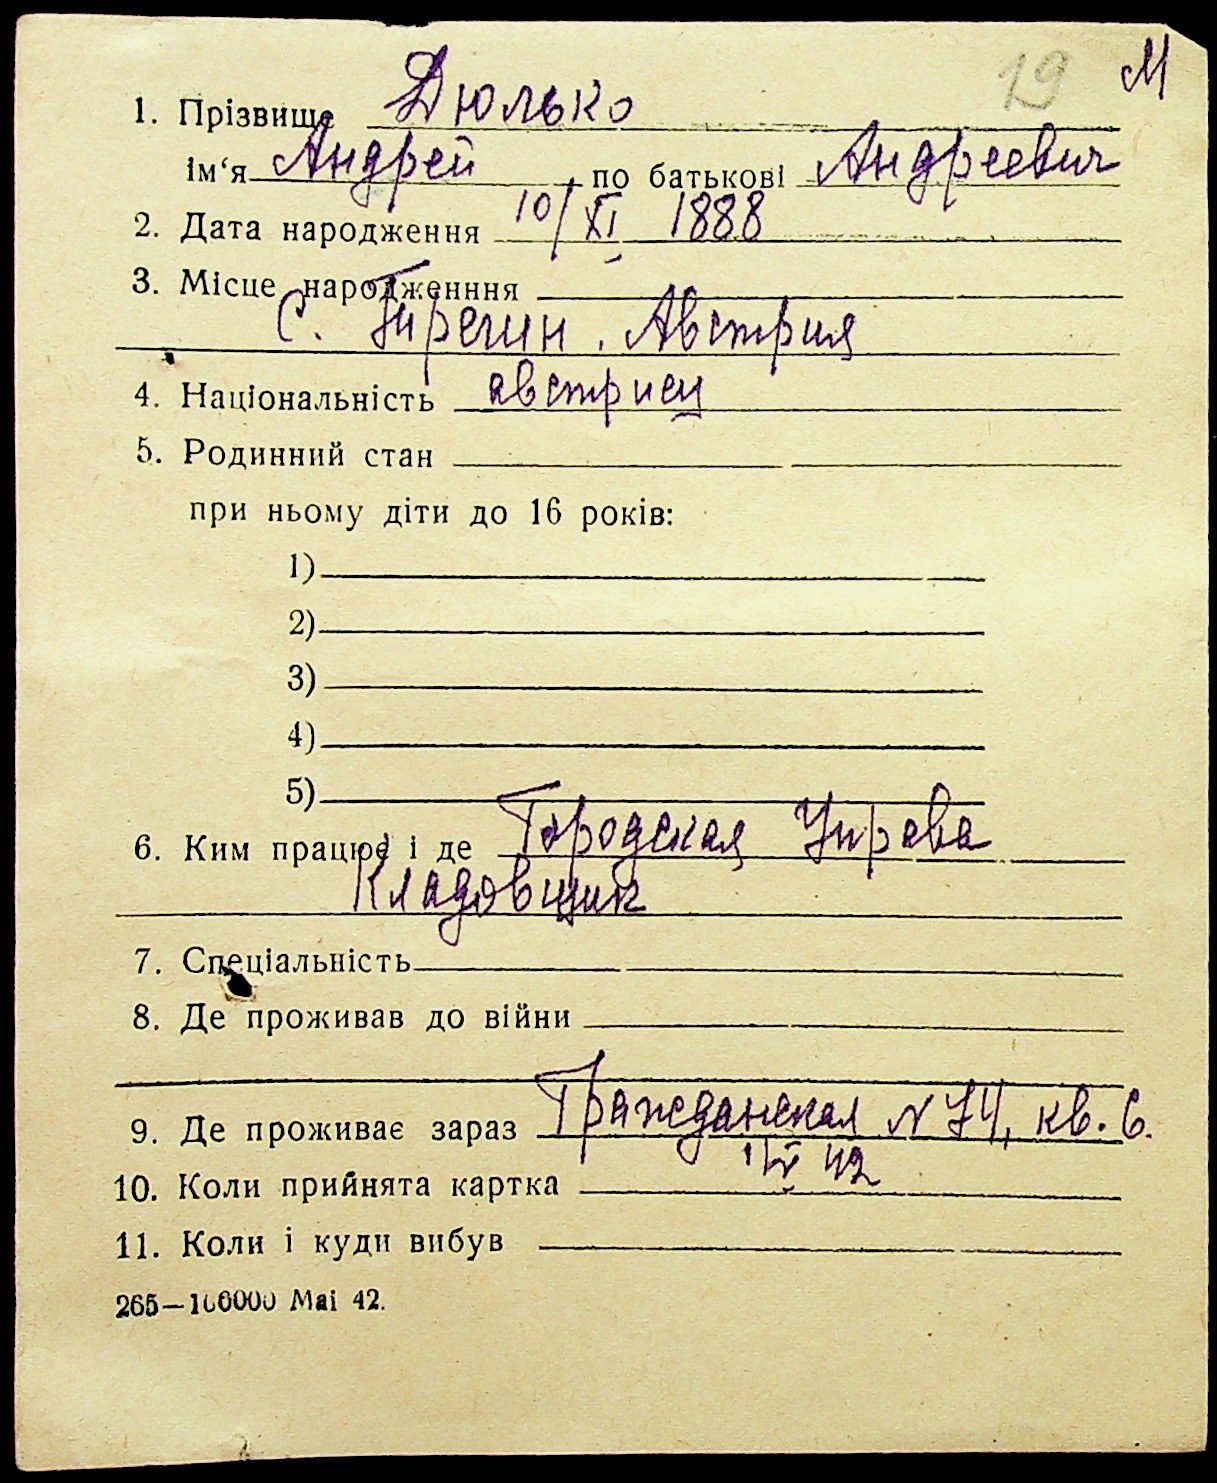 19 М
1. Прізвище Дюлько
ім‘я Андрей по батькові Андреевич
2. Дата народження 10/XI 1888
3. Місце народженння
С. Тирегин. Австрия
4. Національність австриец
5. Родинний стан
при ньому діти до 16 років:
1)
2)
3)
4)
5)
6. Ким працює і де Городская Управа
Кладовщик
7. Спеціальність
8. Де проживав до війни
9. Де проживає зараз Гражданская N 74, кв. 6.
10. Коли прийнята картка 42
11. Коли і куди вибув
265—100000 Mai 42.